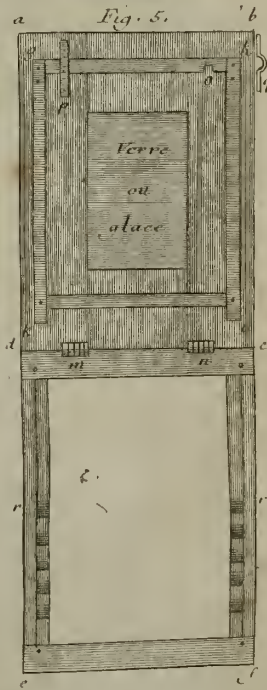 Fig. 5.
a
b
g
h
p
o
Verre
ou
glace
k
d
c
m
n
r
r
e
f